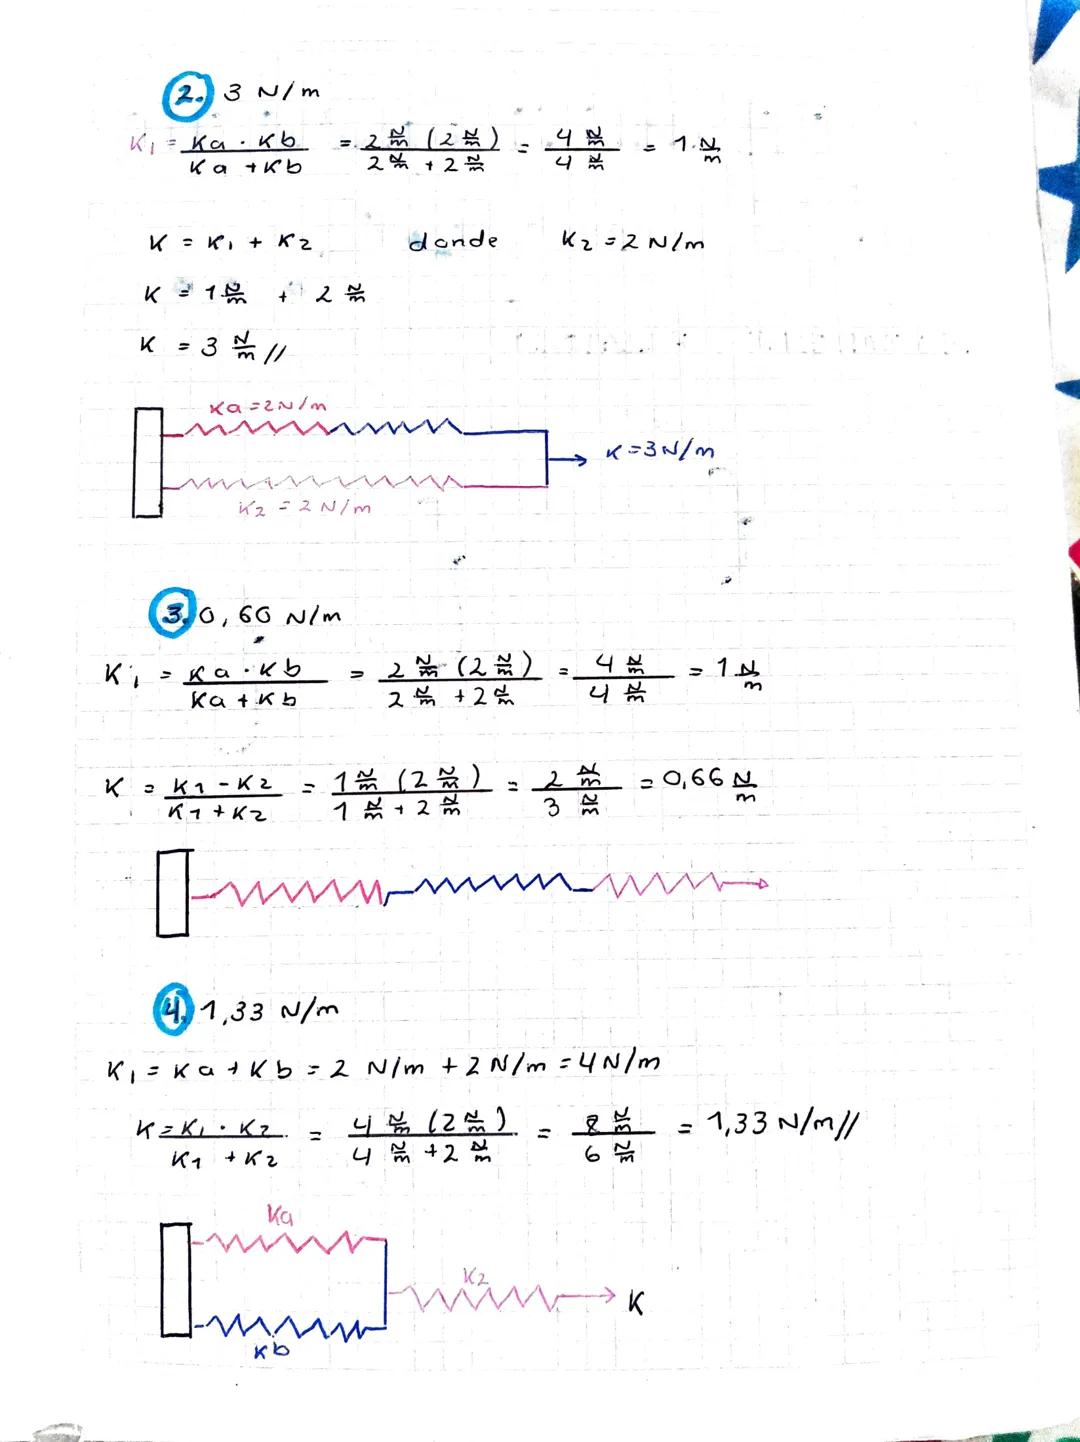 2. 3 N/m
K₁ = Ka · Kb / Ka + Kb = 2 N/m (2 N/m) / 2 N/m + 2 N/m = 4 N/m / 4 N/m = 1 N/m
K = K₁ + K₂ donde K₂ = 2 N/m
K = 1 N/m + 2 N/m
K = 3 N/m //
Ka = 2 N/m
K = 3 N/m
K₂ = 2 N/m
3. 0,60 N/m
K₁ = Ka · Kb / Ka + Kb = 2 N/m (2 N/m) / 2 N/m + 2 N/m = 4 N/m / 4 N/m = 1 N/m
K = K1 - K2 / K1 + K2 = 1 N/m (2 N/m) / 1 N/m + 2 N/m = 2 N/m / 3 N/m = 0,66 N/m
4. 1,33 N/m
K₁ = Ka + Kb = 2 N/m + 2 N/m = 4 N/m
K = K₁ · K₂ / K₁ + K₂ = 4 N/m (2 N/m) / 4 N/m + 2 N/m = 8 N/m / 6 N/m = 1,33 N/m //
Ka
K2
K
Kb